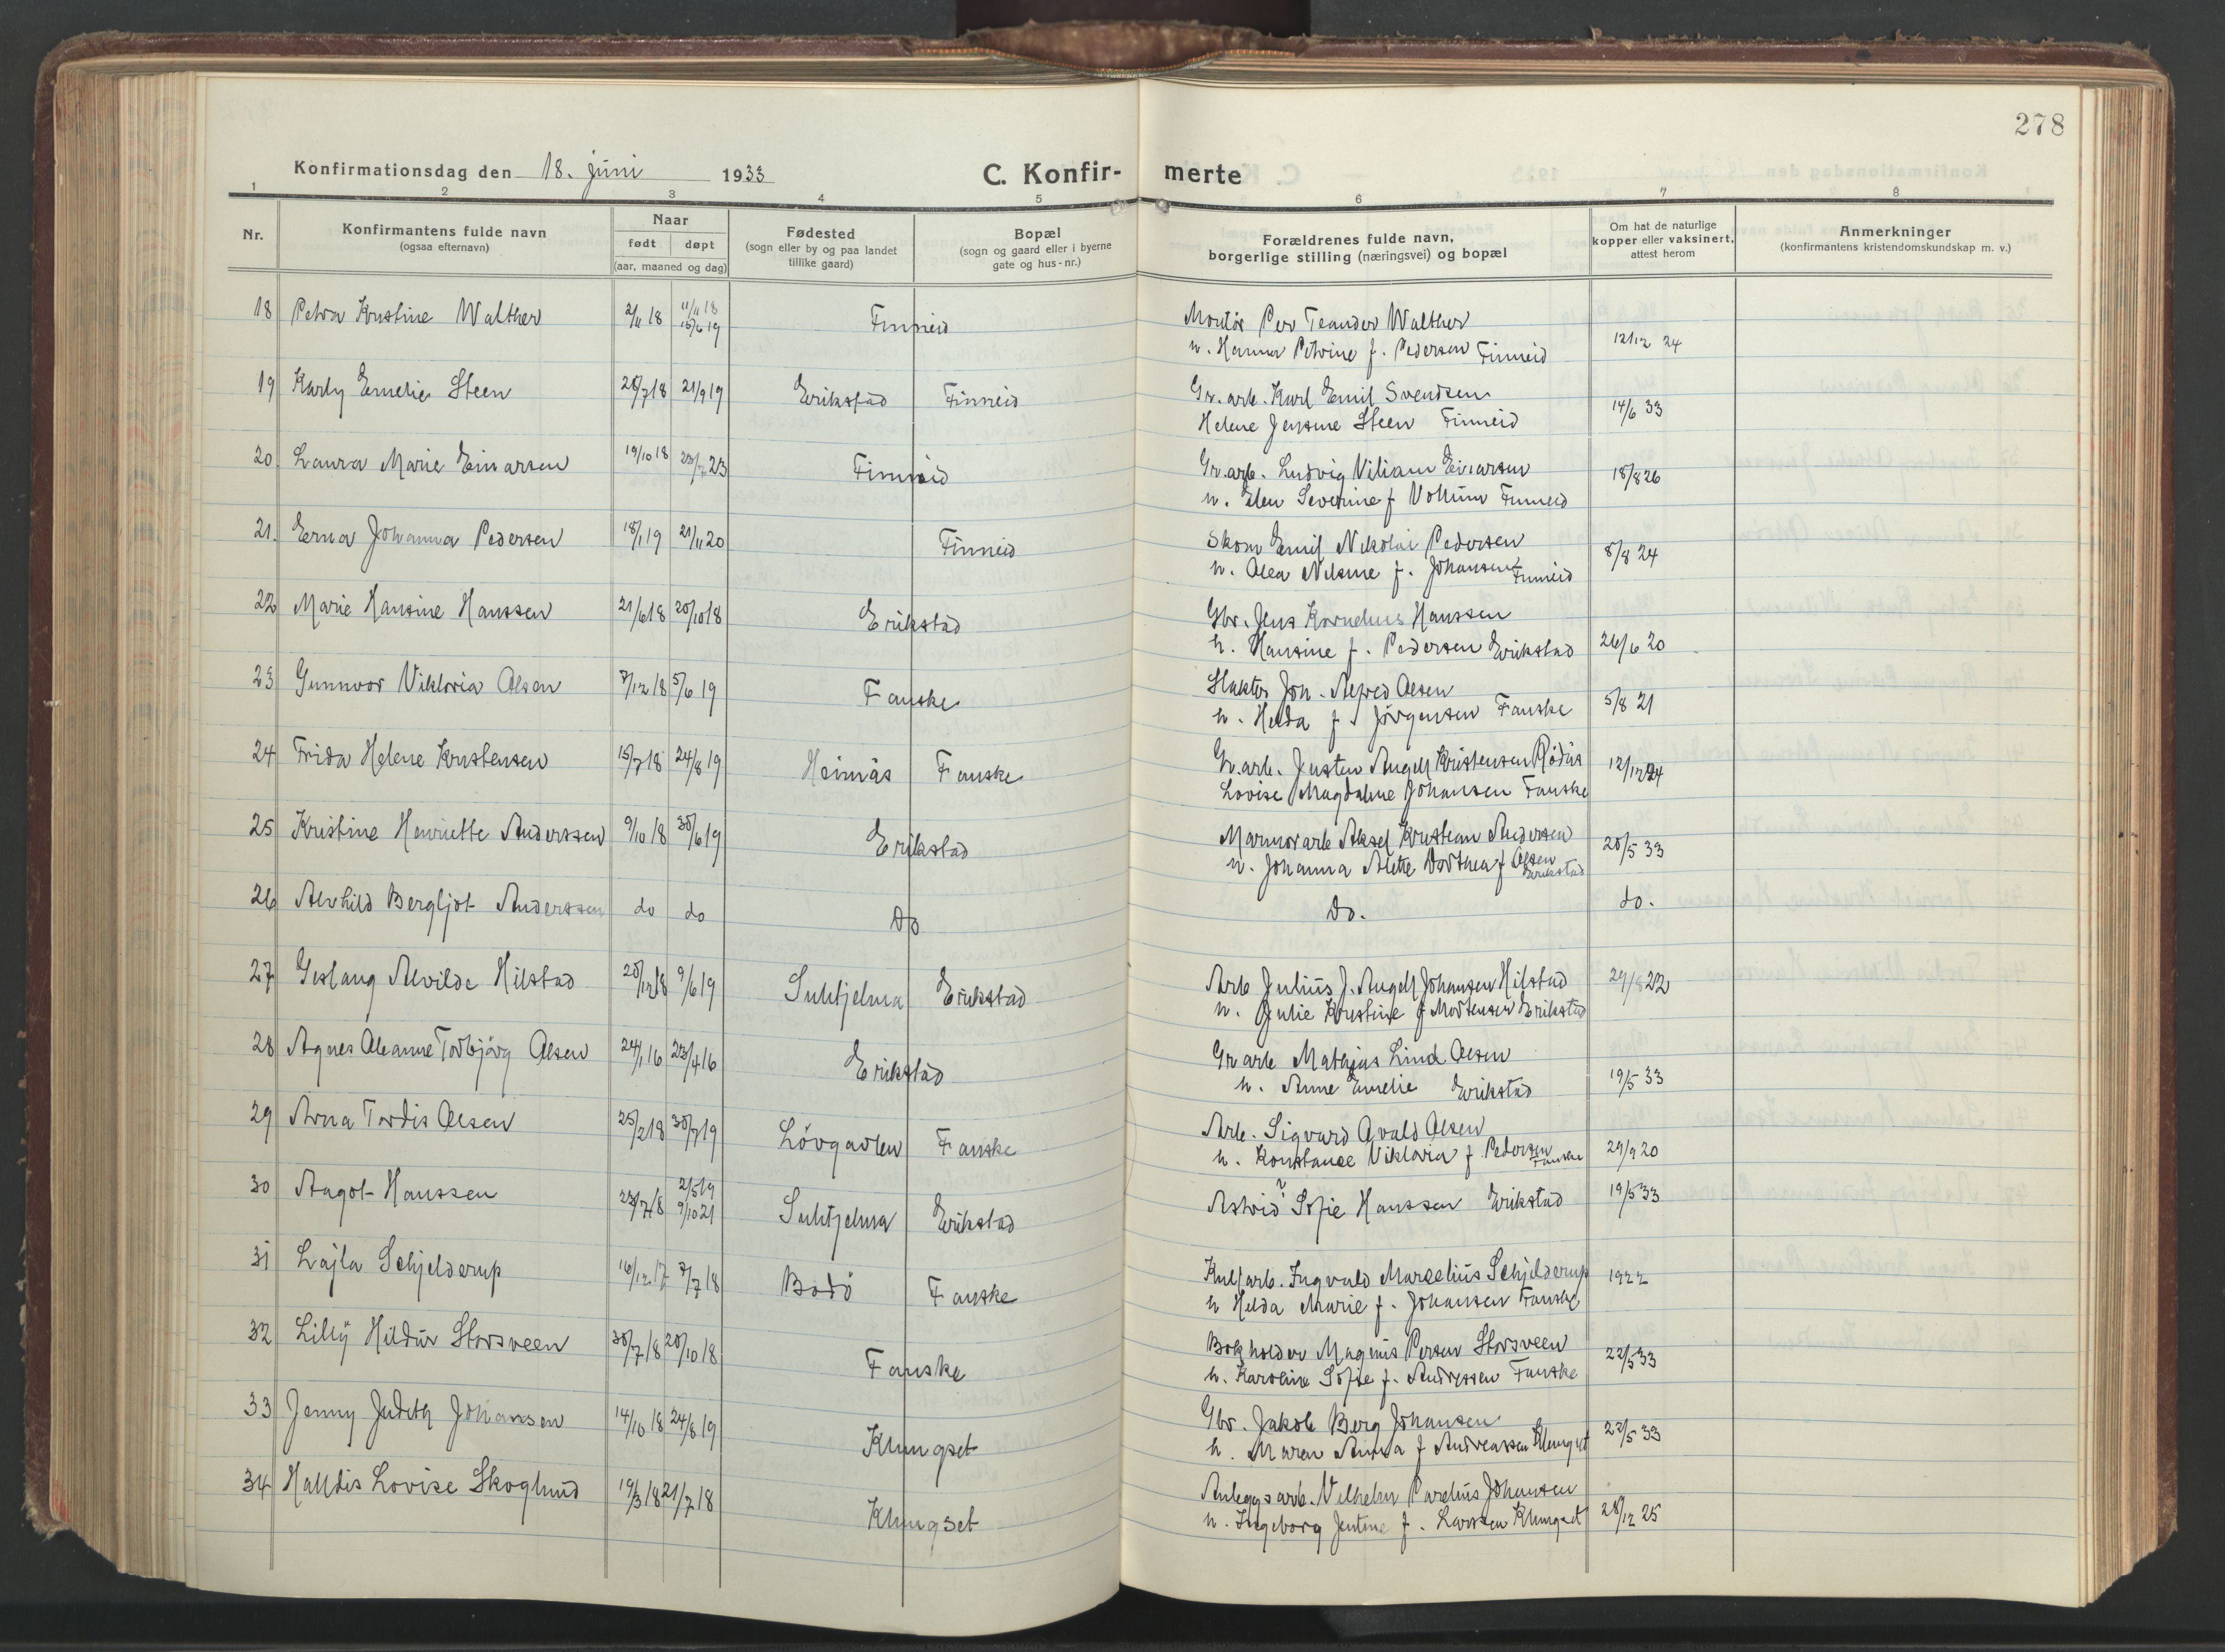 278
Konfirmationsdag den 18. juni 1933
C. Konfir- merte
1 2 3 4 5 6 7 8
Nr.
Konfirmantens fulde navn
(ogsaa efternavn)
Naar
født døpt
(aar, maaned og dag)
Fødested
(sogn eller by og paa landet
tillike gaard)
Bopæl
(sogn og gaard eller i byerne
gate og hus-nr.)
Forældrenes fulde navn,
borgerlige stilling (næringsvei) og bopæl
Om hat de naturlige
kopper eller vaksinert,
attest herom
Anmerkninger
(konfirmantens kristendomskundskap m. v.)
18 Petra Kristine Walther 2/11 18 11/11 18 Finneid Montør Per Teander Walther
15/6 19 h. Hanna Petrine f. Pedersen Finneid 12/12 24
19 Karly Emelie Steen 28/7 18 21/9 19 Erikstad Finneid Gr. arb. Karl Emil Svendsen
Helene Jensine Steen Finneid 14/6 33
20. Laura Marie Einarsen 19/10 18 23/7 23 Finneid Gr. arb. Ludvig Viliam Einarsen 18/8 26
h. Elen Severine f Vollum Finneid
21. Erna Johanna Pedersen 18/1 19 21/11 20 Finneid Skom Emil Nikolai Pedersen
h. Olea Nilsine f. Johansen Finneid 8/8 24
22 Marie Hansine Hanssen 21/6 18 20/10 18 Erikstad Gbr. Jens Kornelius Hanssen
h. Hansine f. Pedersen Erikstad 26/6 20
23 Gunnvor Viktoria Olsen 7/12 18 5/6 19 Fauske Slakter Joh. Alfred Olsen
h. Helda f. Jörgensen Fauske 5/8 21
24 Frida Helene Kristensen 15/7 18 24/8 19 Heimås Fauske Gr. arb. Justen Angell Kristensen Rödås 12/12 24
Lovise Magdalene Johansen Fauske
25 Kristine Henriette Anderssen 9/10 18 30/6 19 Erikstad Marmorarb Aksel Kristian Andersen 20/5 33
h. Johanna Alette Dorthea f Olsen Erikstad
26 Alvhild Bergljot Anderssen do do Do Do. do.
27 Geslaug Alvilde Hilstad 20/12 18 9/6 19 Sulitjelma Erikstad Arb Julius J. Angell Johansen Hilstad 29/8 22
h. Julie Kristine f Mortensen Erikstad
28 Agnes Oleanne Torbjörg Olsen 24/1 16 23/4 16 Erikstad Gr arb Mathias Lind Olsen
h. Anne Emelie Erikstad 19/5 33
29 Arna Tordis Olsen 25/2 18 30/7 19 Lövgavlen Fauske Arb. Sigvard Ovald Olsen
h. Konstance Viktoria f Pedersen Fauske 29/9 20
30 Aagot Hanssen 23/7 18 2/5 19 Sulitjelma Erikstad Astrid Sofie Hanssen Erikstad 19/5 33
9/10 21
31 Lajla Schjelderup 16/12 17 7/7 18 Bodö Fauske Kulfarb. Ingvald Marcelius Schjelderup 1922
h Helda Marie f. Johansen Fauske
32 Lilly Hildur Storsveen 30/7 18 20/10 18 Fauske Bokholder Magnus Persen Storsveen
h. Karoline Sofie f. Andressen Fauske 22/5 33
33 Jenny Judith Johansen 14/10 18 24/8 19 Klungset Gbr. Jakob Berg Johansen
h. Maren Anna f Andreassen Klungset 22/5 33
34 Halldis Lovise Skoglund 19/3 18 21/7 18 Klungset Anleggsarb. Vilhelm Parelius Johansen
h. Ingeborg Jentine f. Larssen Klungset 28/12 25